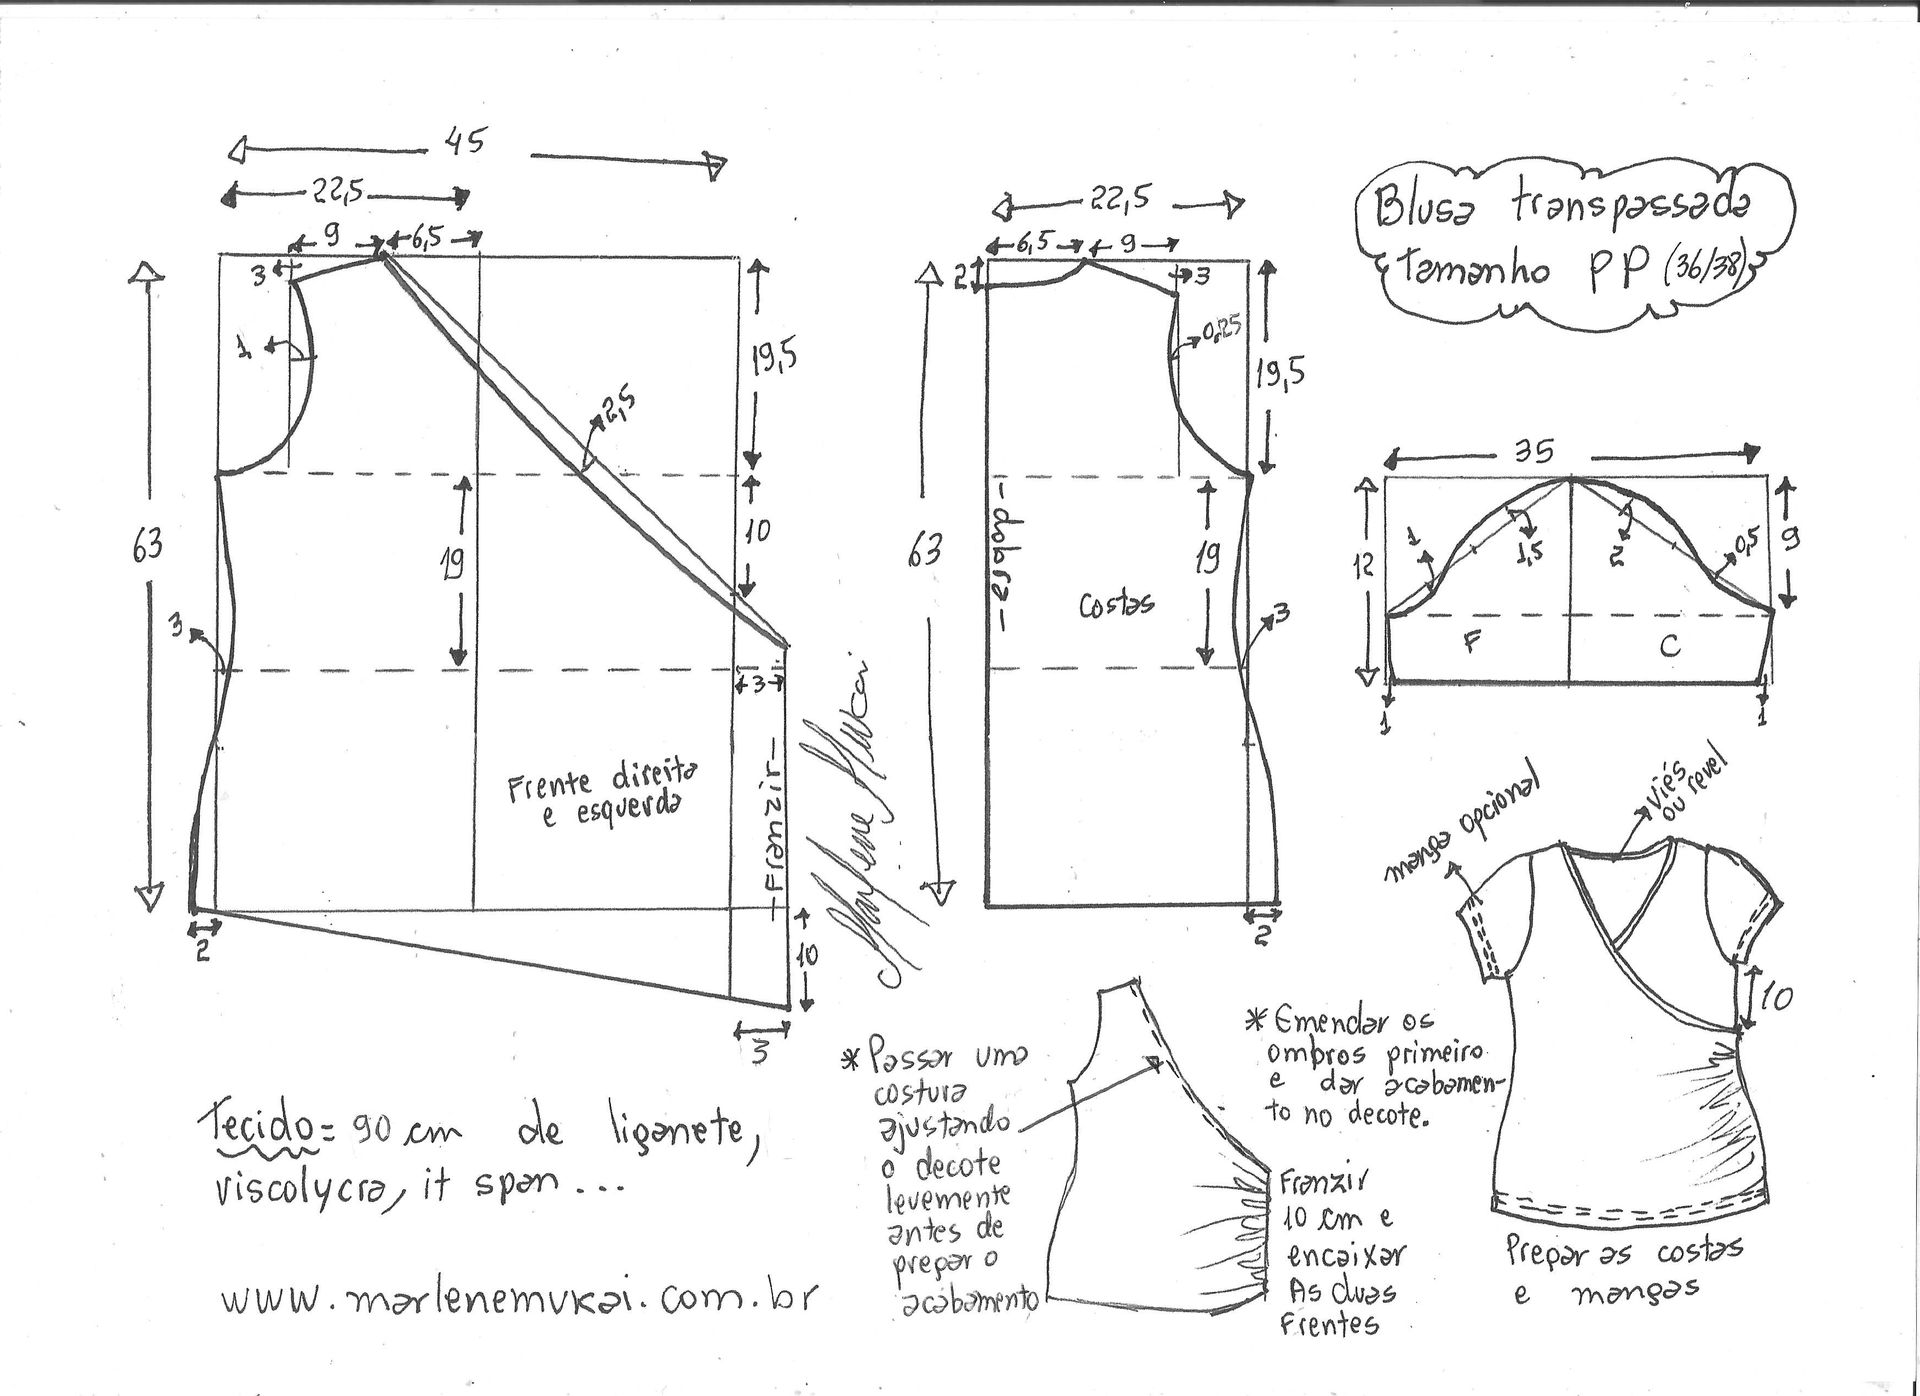 45
22,5
9
6,5
3
1
63
19,5
2,5
10
19
3
3
Frente direita
e esquerda
-Franzir-
2
10
3
Marlene Mukai
22,5
6,5
9
2
3
0,25
63
19,5
-dobra-
19
Costas
3
2
Blusa transpassada
tamanho PP (36/38)
35
12
1
1,5
2
0,5
9
F
C
1
1
manga opcional
viés
ou revel
10
Prepar as costas
e mangas
* Passar uma
costura
ajustando
o decote
levemente
antes de
prepar o
acabamento
* Emendar os
ombros primeiro
e dar acabamen-
to no decote.
Franzir
10 cm e
encaixar
As duas
Frentes
Tecido = 90 cm de liganete,
viscolycra, it span...
www.marlenemukai.com.br